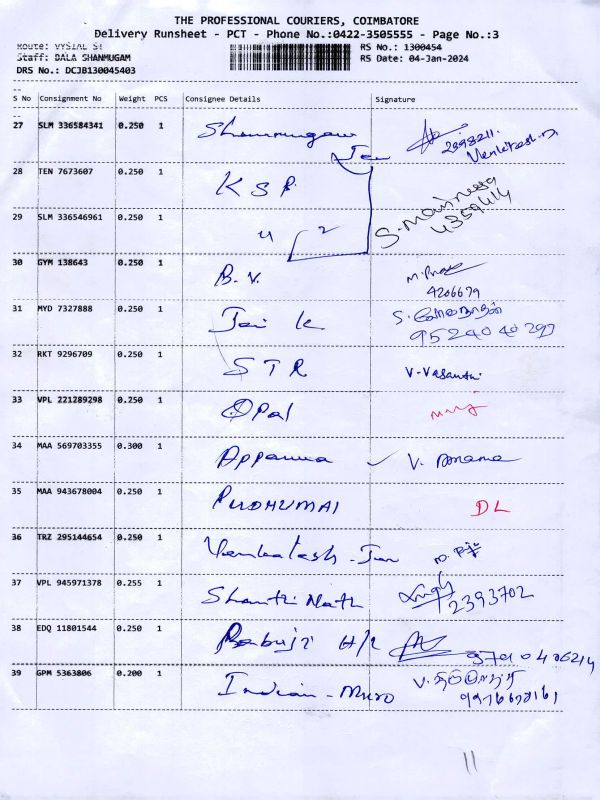 THE PROFESSIONAL COURIERS, COIMBATORE
Delivery Runsheet - PCT - Phone No.:0422-3505555 - Page No.:3
Route: VYSIAL ST RS No.: 1300454
Staff: BALA SHANMUGAM RS Date: 04-Jan-2024
DRS No.: DCJB130045403
S No Consignment No Weight PCS Consignee Details Signature
27 SLM 336584341 0.250 1 Shanmugam
Jew 2398211
Venkatesh.
28 TEN 7673607 0.250 1 K S P. S. 
4359414
29 SLM 336546961 0.250 1 4 2
30 GYM 138643 0.250 1 B. V. M.
4206679
31 MYD 7327888 0.250 1 Jai K S.
95240 40 297
32 RKT 9296709 0.250 1 S T R V. Vasanthi
33 VPL 221289298 0.250 1 Opal
34 MAA 569703355 0.300 1 Appanna ✓ V.
35 MAA 943678004 0.250 1 PUDHUMAI DL
36 TRZ 295144654 0.250 1 Venkatesh - Jew
37 VPL 945971378 0.255 1 Shanthi Nath
2393702
38 EDQ 11801544 0.250 1 Babuji H/L
39 GPM 5363806 0.200 1 Indian - V.
11